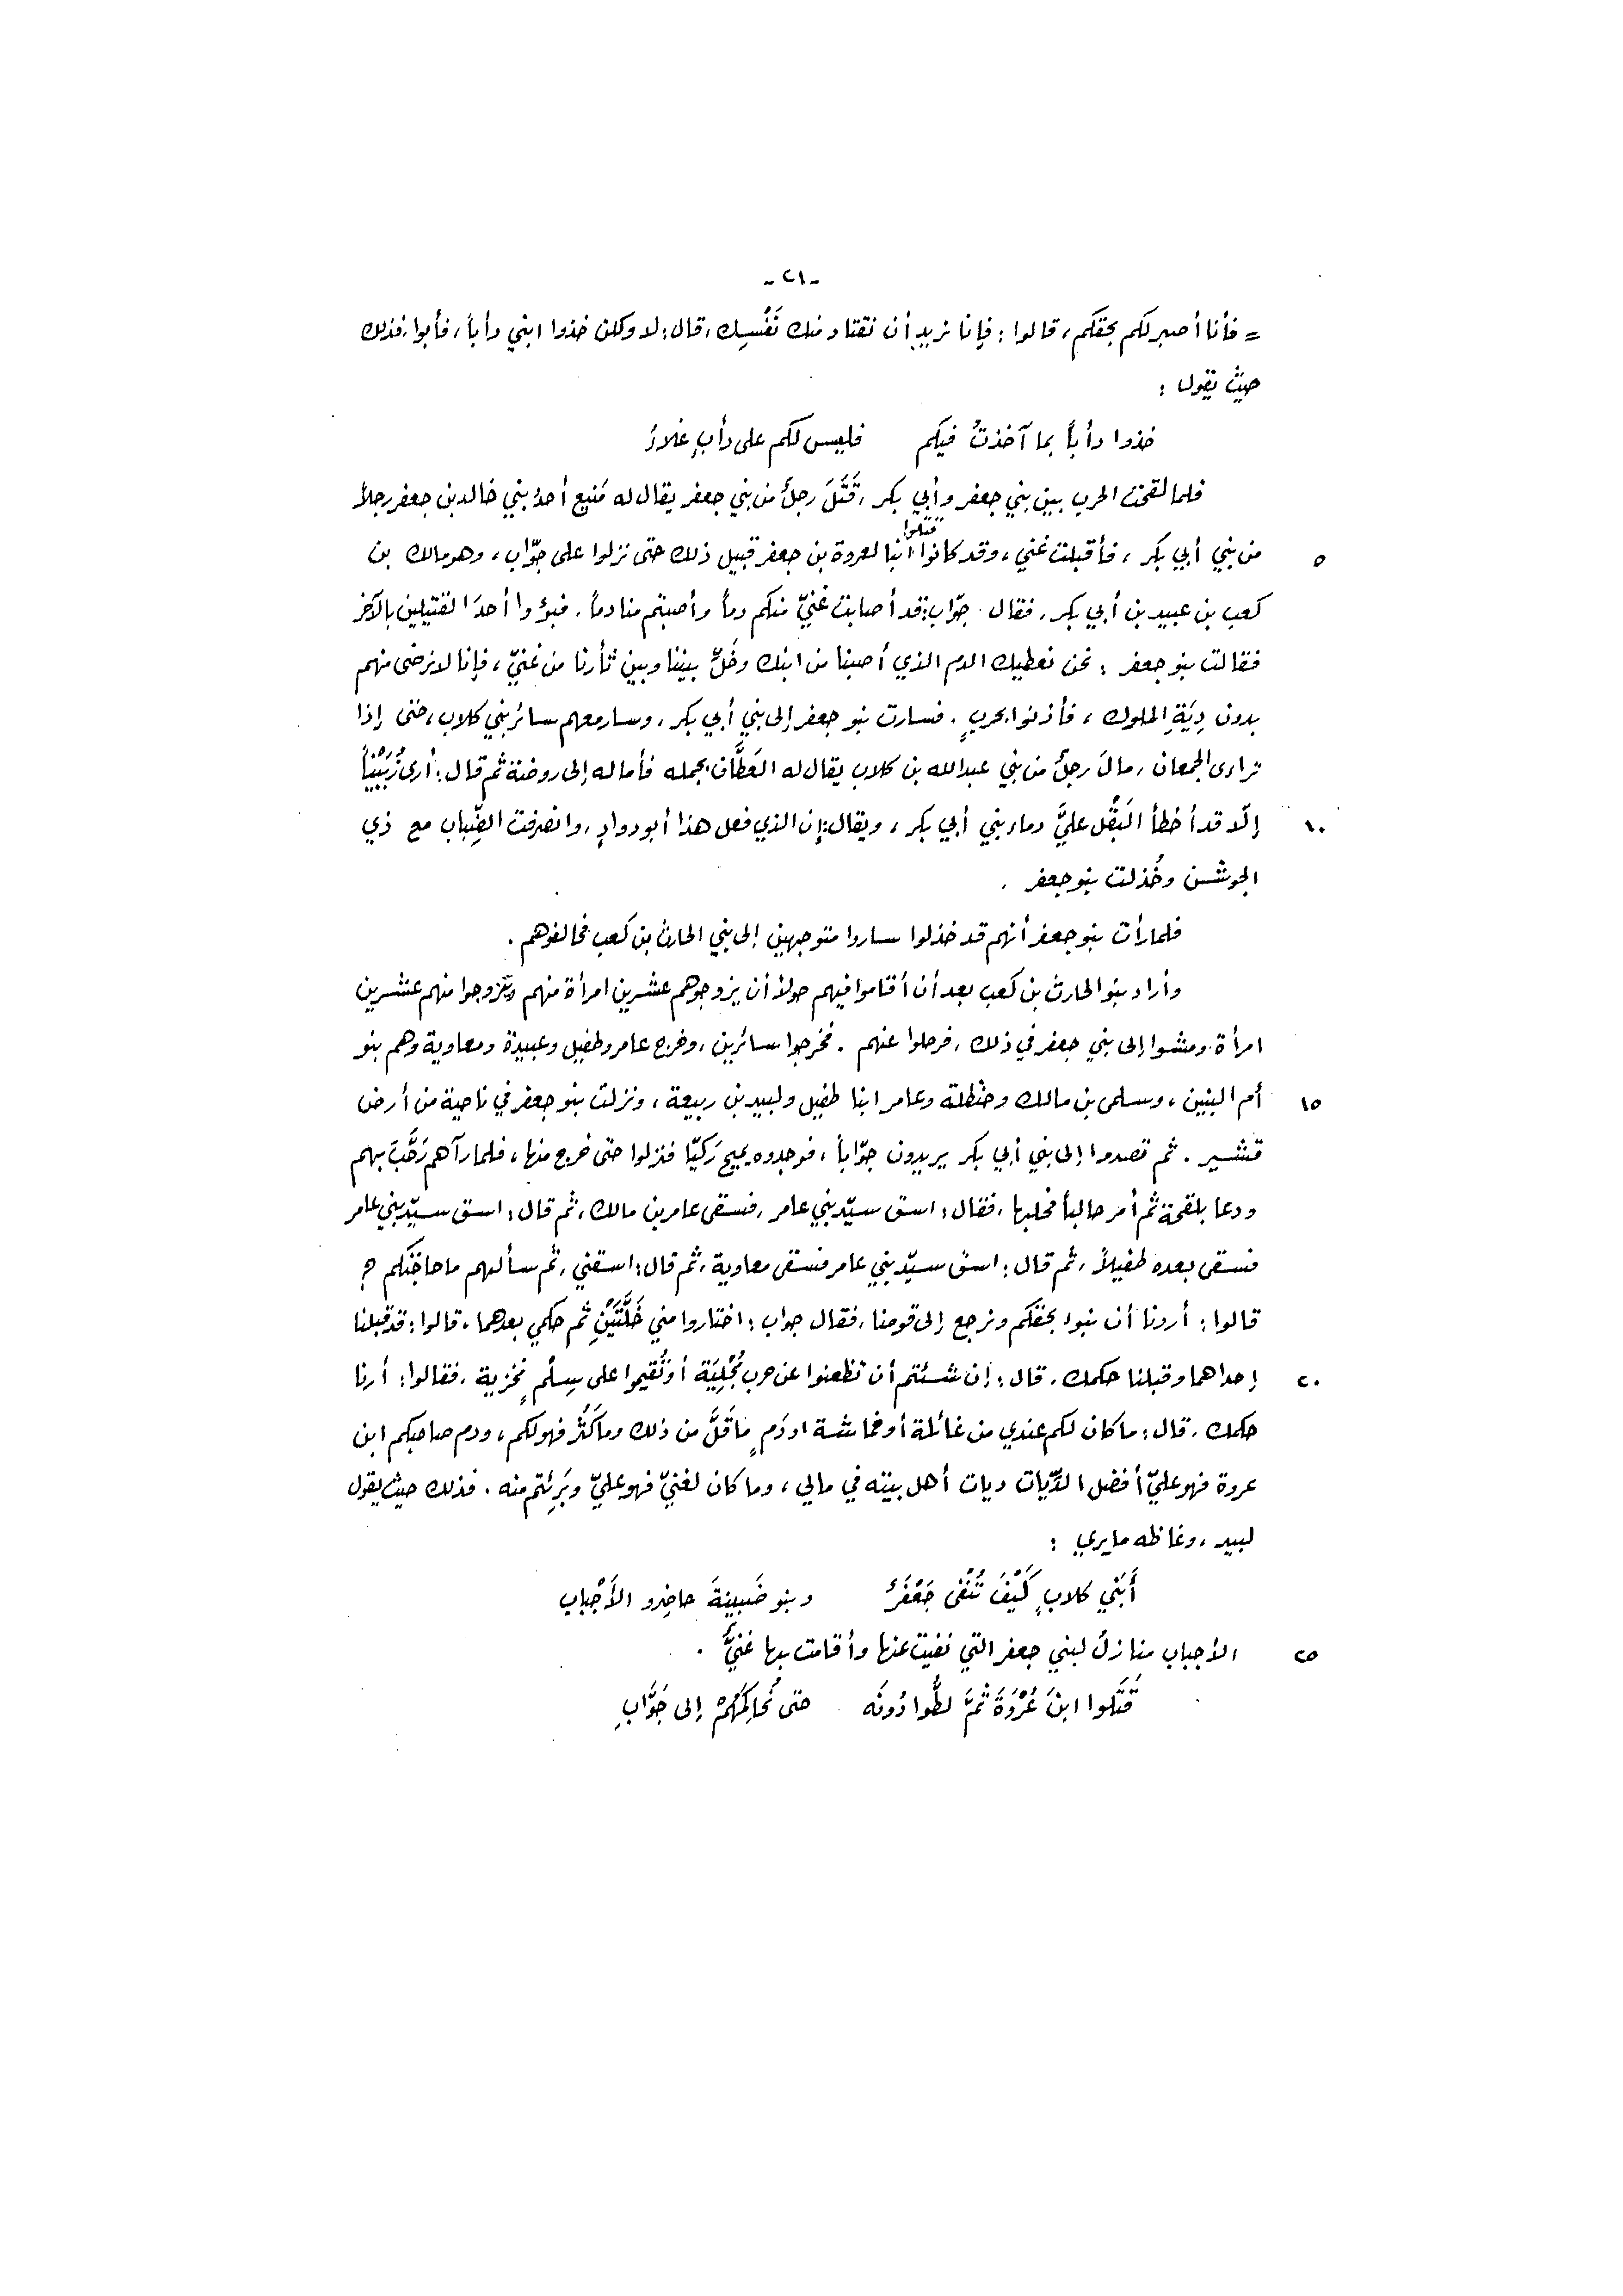 -٢١-
= فأنا أصبر لكم بحقكم، قالوا: فإنا نريد أن نقتاد منك نَفْسِك، قال: لا ولكن خذوا ابني دأباً، فأبوا، فذلك
حيث يقول :
خذوا دأباً بما آخذتُ فيكم فليس لكم على دأبٍ غلاءُ
فلما لقحت الحرب بين بني جعفر وأبي بكر، قَتَلَ رجلٌ من بني جعفر يقال له مَنيع أحدُ بني خالد بن جعفر رجلاً
٥ من بني أبي بكر، فأقبلت غني، وقد كانوا قتلوا ابنا لعروة بن جعفر قبيل ذلك حتى نزلوا على جوّاب، وهو مالك بن
كعب بن عبيد بن أبي بكر، فقال جوّاب: قد أصابت غنيّ منكم دماً وأصبتم منا دماً، فبوءوا أحدَ القتيلين بالآخر
فقالت بنو جعفر : نحن نعطيك الدم الذي أصبنا من ابنك وخَلِّ بيننا وبين ثأرنا من غنيّ، فإنا لا نرضى منهم
بدون دِيَةِ الملوك، فأذنوا بحربٍ. فسارت بنو جعفر إلى بني أبي بكر، وسار معهم سائر بني كلاب، حتى إذا
تراءى الجمعان، مالَ رجلٌ من بني عبد الله بن كلاب يقال له العَطَّاف بجمله فأماله إلى روضة ثم قال: أرى زُبَيْنِياً
١٠ إلّا قد أخطأ البَقْل عليَّ دماء بني أبي بكر، ويقال: إن الذي فعل هذا أبو دوادٍ، وانصرفت الضِّباب مع ذي
الجوشن وخُذلت بنو جعفر .
فلما رأت بنو جعفر أنهم قد خذلوا ساروا متوجهين إلى بني الحارث بن كعب فحالفوهم.
وأراد بنو الحارث بن كعب بعد أن أقاموا فيهم حولاً أن يزوجوهم عشرين امرأة منهم ويتزوجوا منهم عشرين
امرأة ومشوا إلى بني جعفر في ذلك، فرحلوا عنهم. فخرجوا سائرين، وخرج عامر وطفيل وعبيدة ومعاوية وهم بنو
١٥ أم البنين، وسلمى بن مالك وحنظلة وعامر ابنا طفيل ولبيد بن ربيعة، ونزلت بنو جعفر في ناحية من أرض
قشير. ثم قصدوا إلى بني أبي بكر يريدون جوّاباً، فوجدوه يميح رَكيّا فنزلوا حتى خرج منها، فلما رآهم رَحَّبَ بهم
ودعا بلقحة ثم أمر حالباً فحلبها، فقال: اسق سيّد بني عامر، فسقى عامر بن مالك، ثم قال: اسق سيّد بني عامر
فسقى بعده طفيلاً، ثم قال: اسق سيّد بني عامر فسقى معاوية، ثم قال: اسقني، ثم سألهم ما حاجتكم؟
قالوا: أردنا أن نبوء بحقكم ونرجع إلى قومنا، فقال جواب: اختاروا مني خَلَّتَيْنِ ثم حكمي بعدهما، قالوا: قد قبلنا
٢٠ إحداهما وقبلنا حكمك، قال: إن شئتم أن تظعنوا عن حرب مُجْلِيَة أو تُقيموا على سِلْمٍ مخزية، فقالوا: أرنا
حكمك، قال: ما كان لكم عندي من غائلة أو خماشة او دَمٍ ما قَلَّ من ذلك وما كَثُر فهو لكم، ودم صاحبكم ابن
عروة فهو عليّ أفضل الدِّيات ديات أهل بيته في مالي، وما كان لغنيّ فهو عليّ وبَرِئتم منه. فذلك حيث يقول
لبيد، وغاظه ما يرى :
أَبَني كلابٍ كَيْفَ تُنْفى جَعْفَرٌ وبنو ضَبينةَ حاضِرو الأَجْباب
٢٥ الأجباب منازلُ لبني جعفر التي نفيت عنها وأقامت بها غنيٌّ .
قَتَلوا ابنَ عُرْوَةَ ثمَّ لطُّوا دُونَه حتى نُحاكِمَهُمْ إلى جَوَّابِ